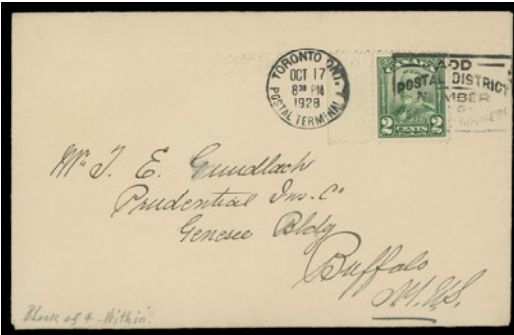 TORONTO ONT.
OCT 17
8³⁰ PM
1928
POSTAL TERMINAL
CANADA
2 CENTS 2
ADD
POSTAL DISTRICT
NUMBER
Mr. J. E. Gundlach
Prudential Ins. Co
Genesee Bldg
Buffalo
N.Y.
Block of 4 Within.